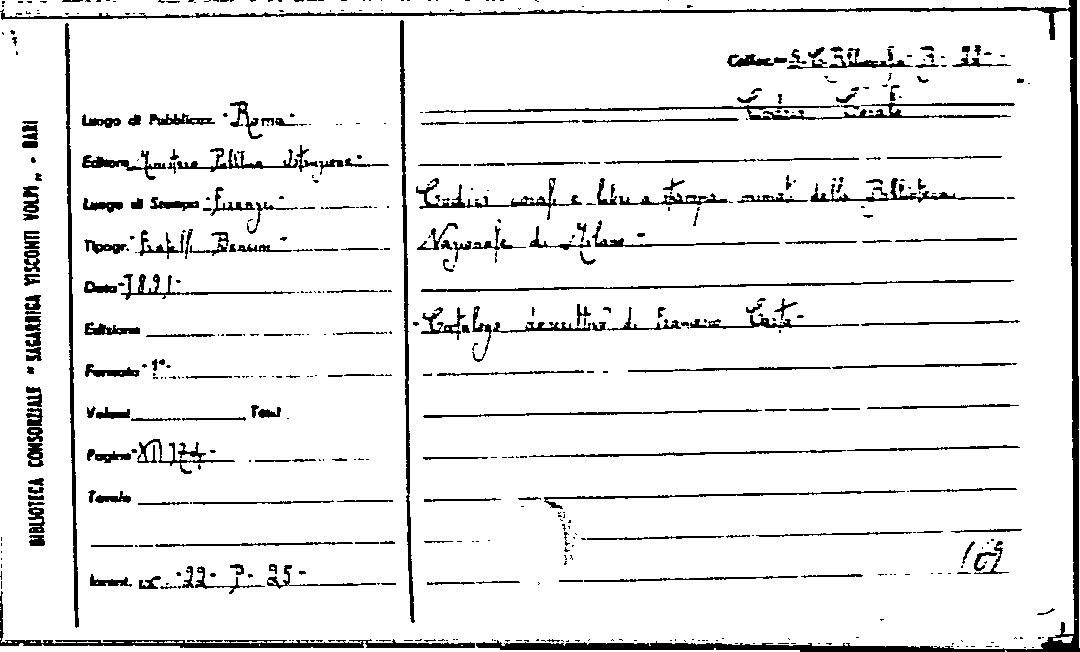 BIBLIOTECA CONSORZIALE "SAGARRIGA VISCONTI VOLPI" - BARI
Colloc.
Luogo di Pubblicaz. - Roma -
Editore Ministero Pubblica Istruzione -
Luogo di Stampa - Firenze -
Tipogr. - Fratelli Bencini -
Data - 1891 -
Edizione
Formato
Volumi Tomi
Pagine
Tavole
Invent. - 22 - P - 25 -
Codici corali e libri a stampa miniati della Biblioteca
Nazionale di Milano -
- Catalogo descrittivo di Francesco Carta -
169